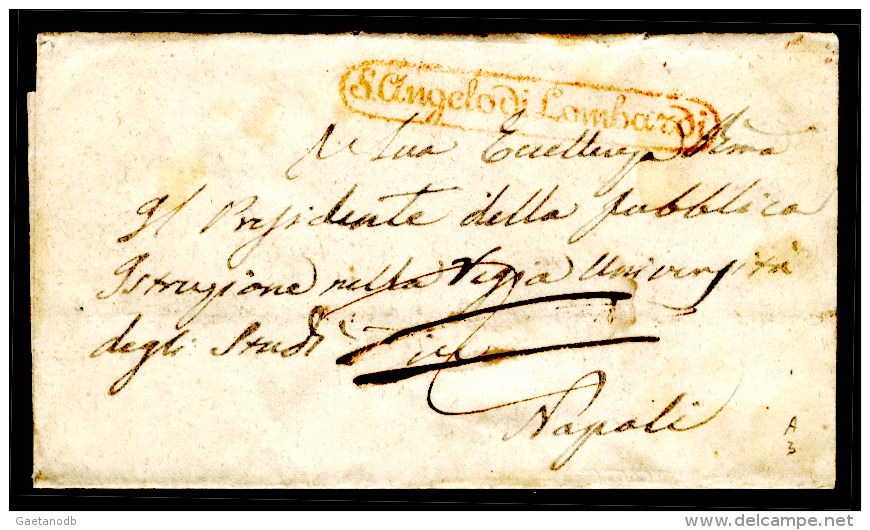 S. Angelo di Lombardi
A Sua Eccellenza Rma
Il Presidente della pubblica
Istruzione nella Regia Università
degli Studi
Napoli
A
3
Gaetanodb
delcampe.net